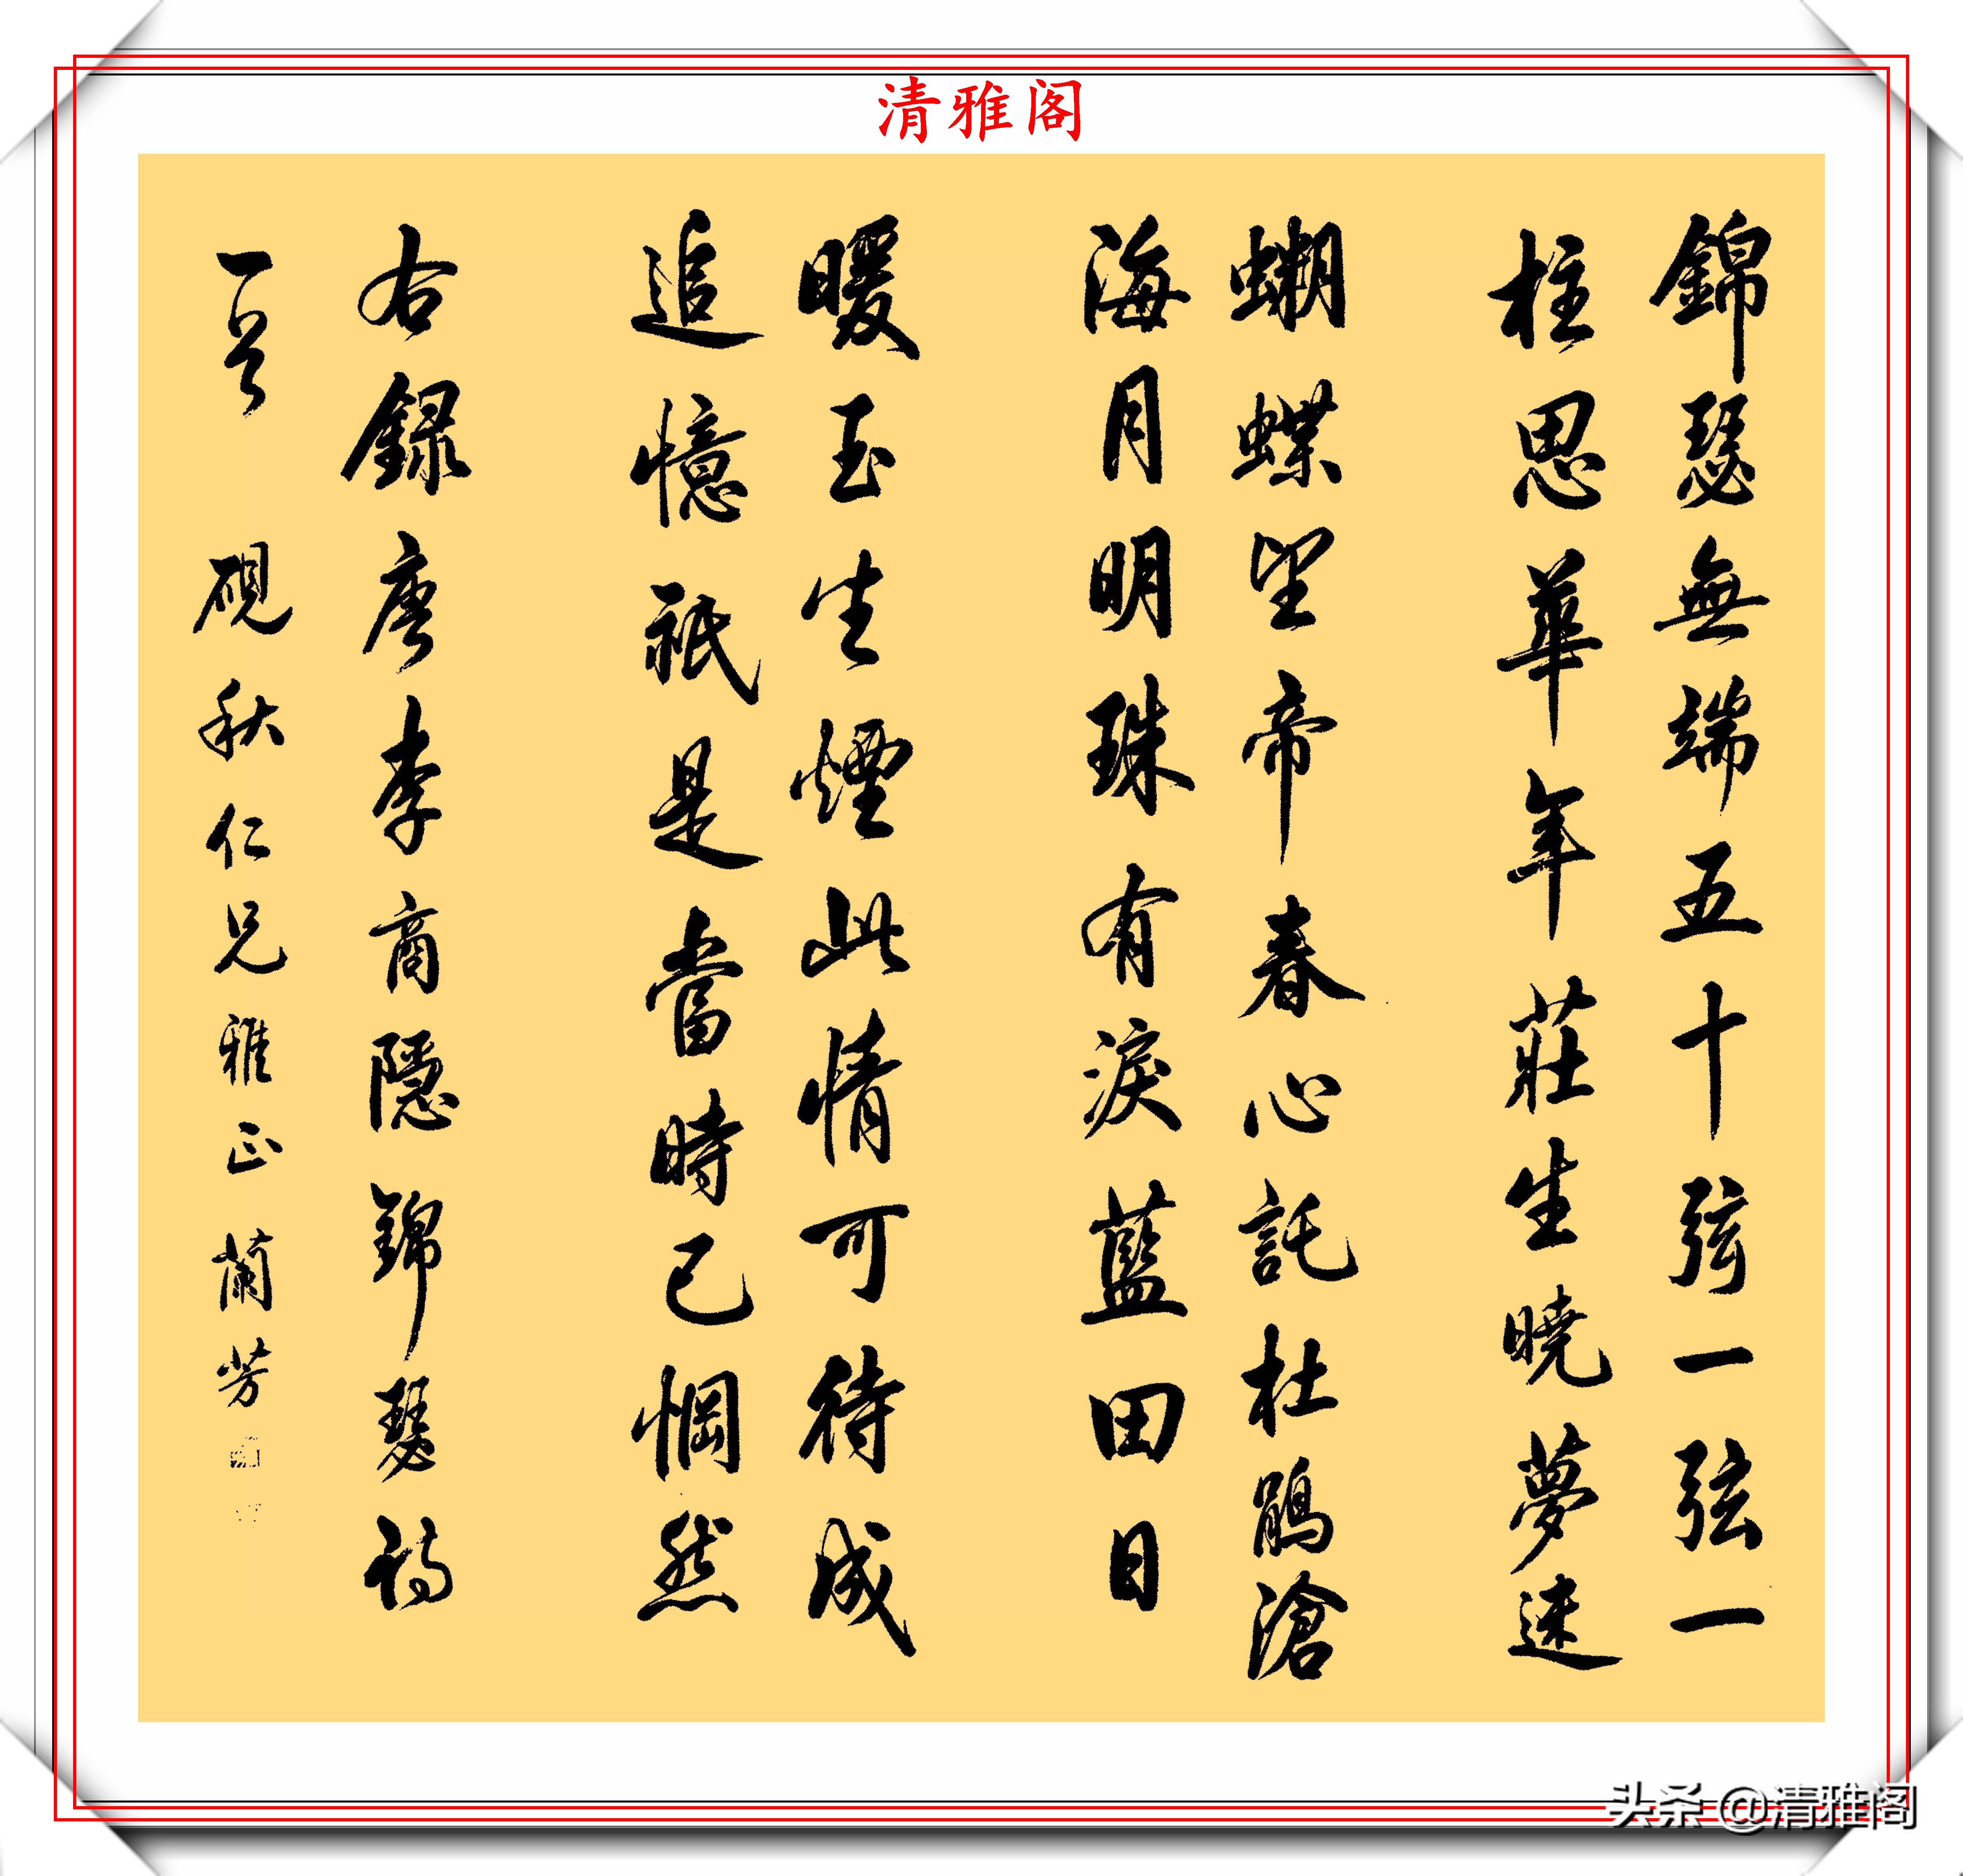 清雅阁
錦瑟無端五十弦一弦一
柱思華年莊生曉夢迷
蝴蝶望帝春心託杜鵑滄
海月明珠有淚藍田日
暖玉生煙此情可待成
追憶祇是當時已惘然
右録唐李商隱錦瑟詩
一首 硯秋仁兄雅正 蘭芳
头条 @清雅阁